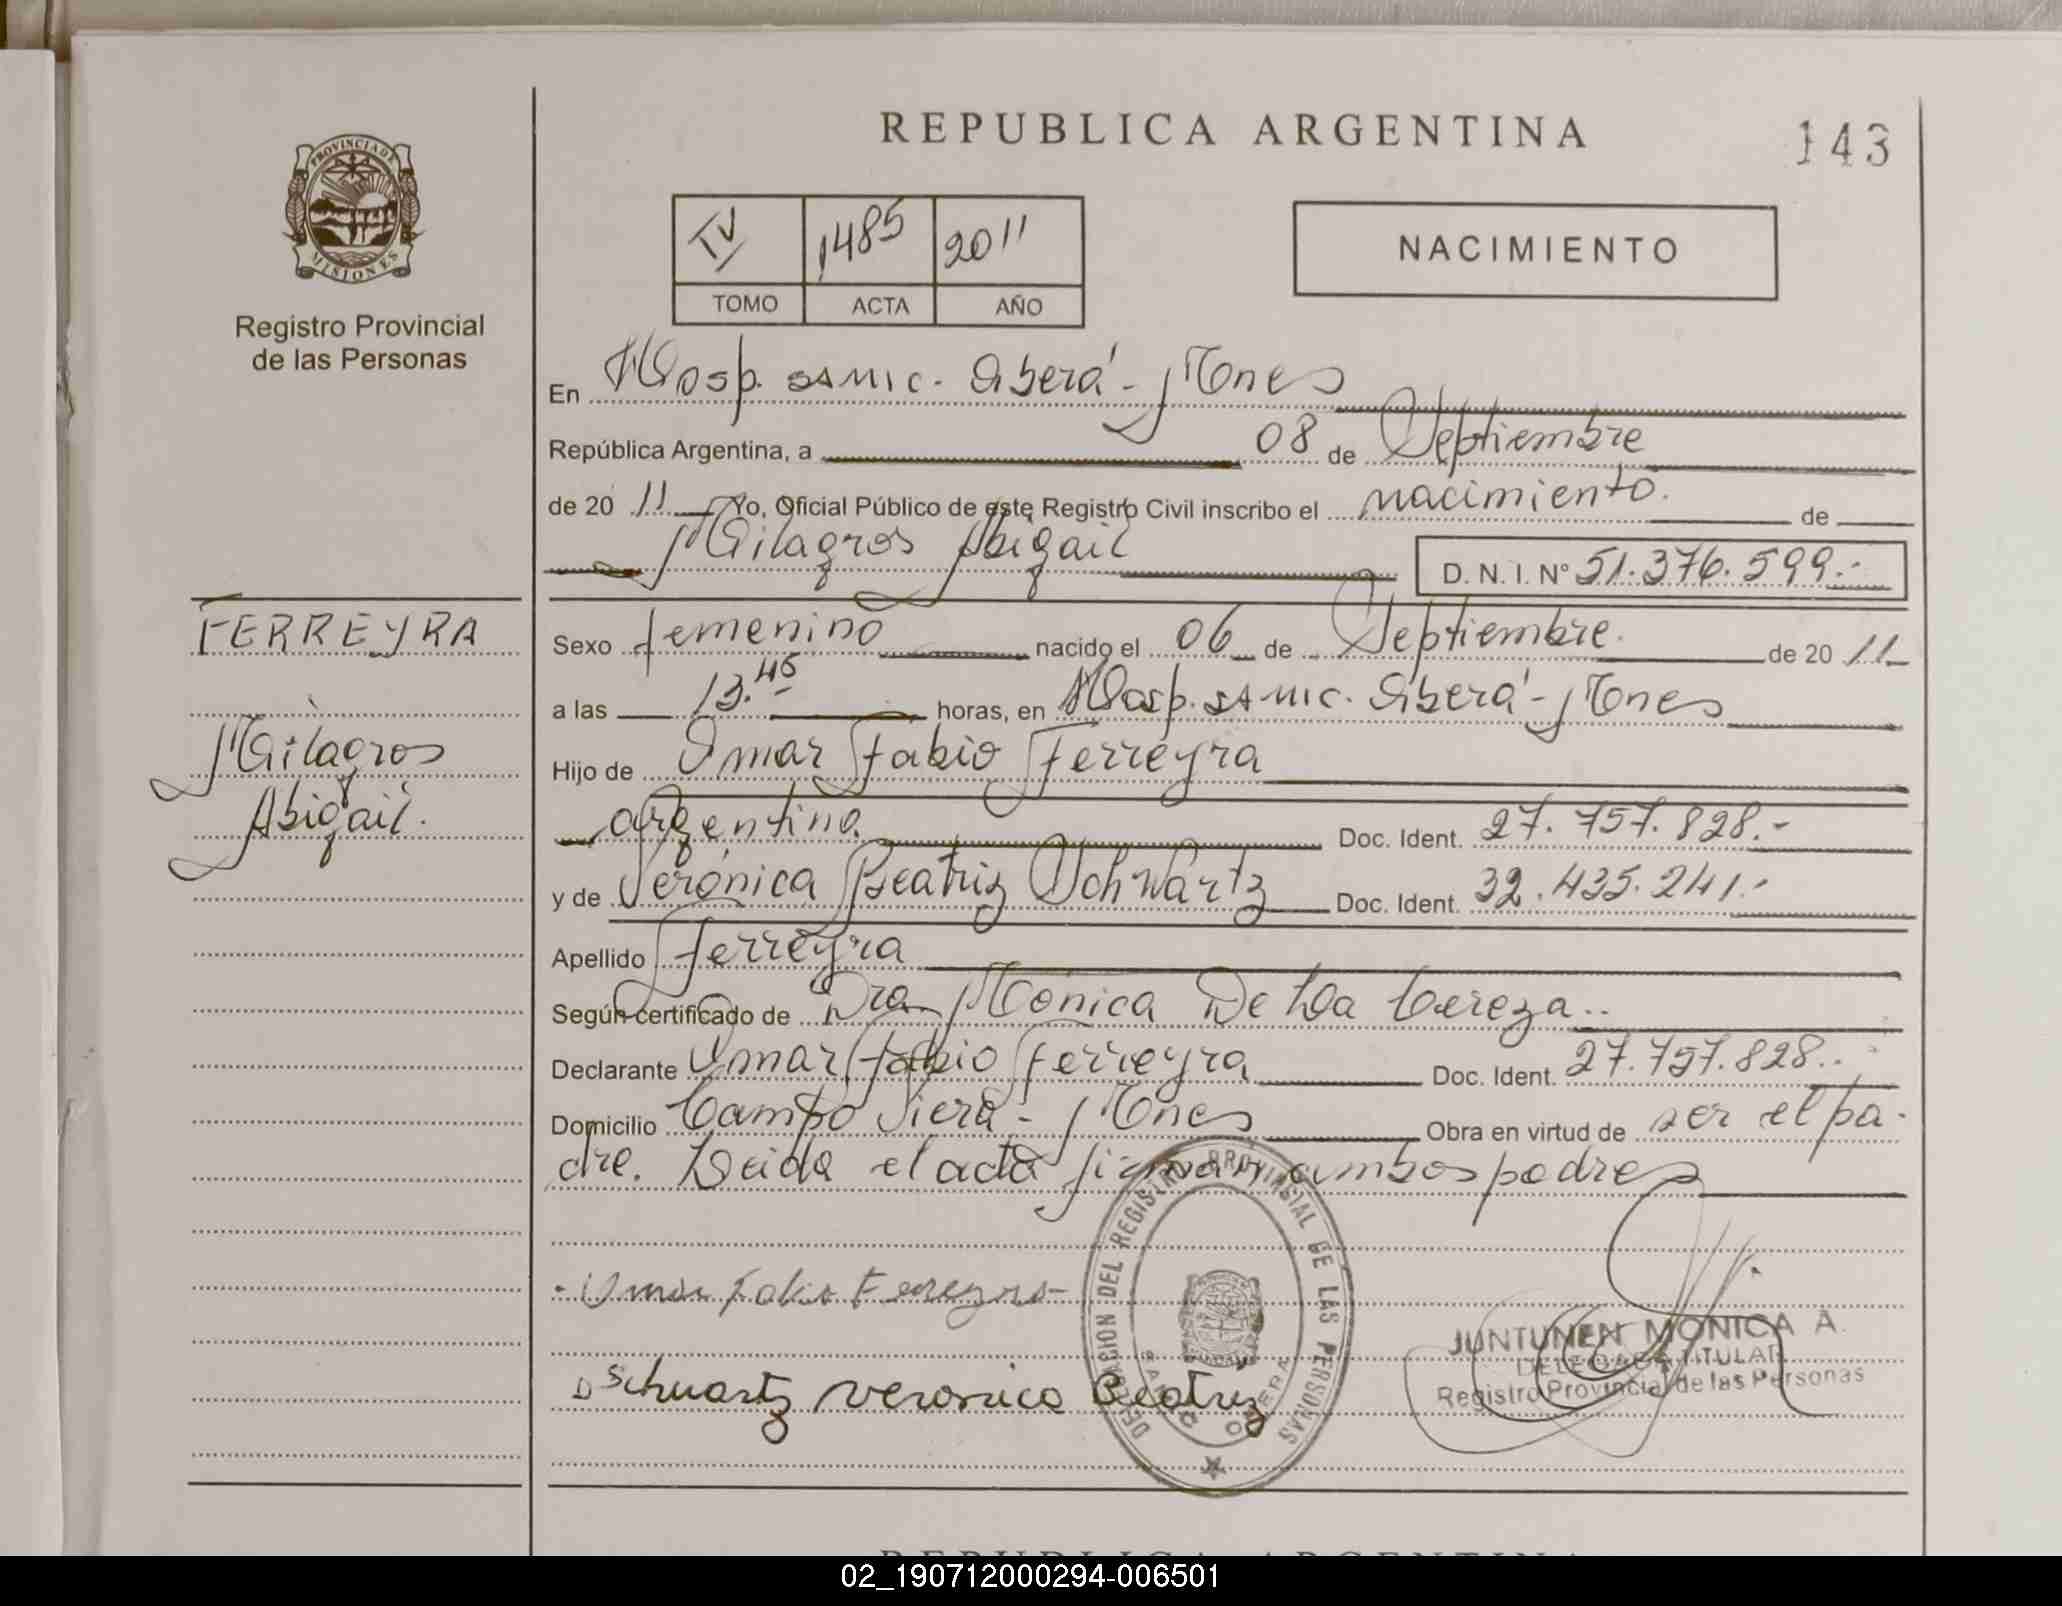 REPUBLICA ARGENTINA
143
PROVINCIA DE MISIONES
Registro Provincial
de las Personas
IV 1485 2011
TOMO ACTA AÑO
NACIMIENTO
En Hosp. samic. Oberá - Mnes
República Argentina, a 08 de Septiembre
de 20 11 Yo, Oficial Público de este Registro Civil inscribo el nacimiento. de
Milagros Abigail D. N. I. Nº 51.376.599.-
FERREYRA
Milagros
Abigail.
Sexo femenino nacido el 06 de Septiembre. de 20 11
a las 13.45 horas, en Hosp. samic. Oberá - Mnes
Hijo de Omar Fabio Ferreyra
argentino. Doc. Ident. 27.757.828.-
y de Verónica Beatriz Schwartz Doc. Ident. 32.435.241.-
Apellido Ferreyra
Según certificado de Dra Mónica De La Cereza..
Declarante Omar Fabio Ferreyra Doc. Ident. 27.757.828..
Domicilio Campo Viera - Mnes Obra en virtud de ser el pa-
dre. Leida el acta firman ambos padres
Omar Fabio Ferreyra
Schwartz Veronica Beatriz
DELEGACION DEL REGISTRO PROVINCIAL DE LAS PERSONAS
OBERA
JUNTUNEN MONICA A.
DELEGADA TITULAR
Registro Provincial de las Personas
REPUBLICA ARGENTINA
02_190712000294-006501